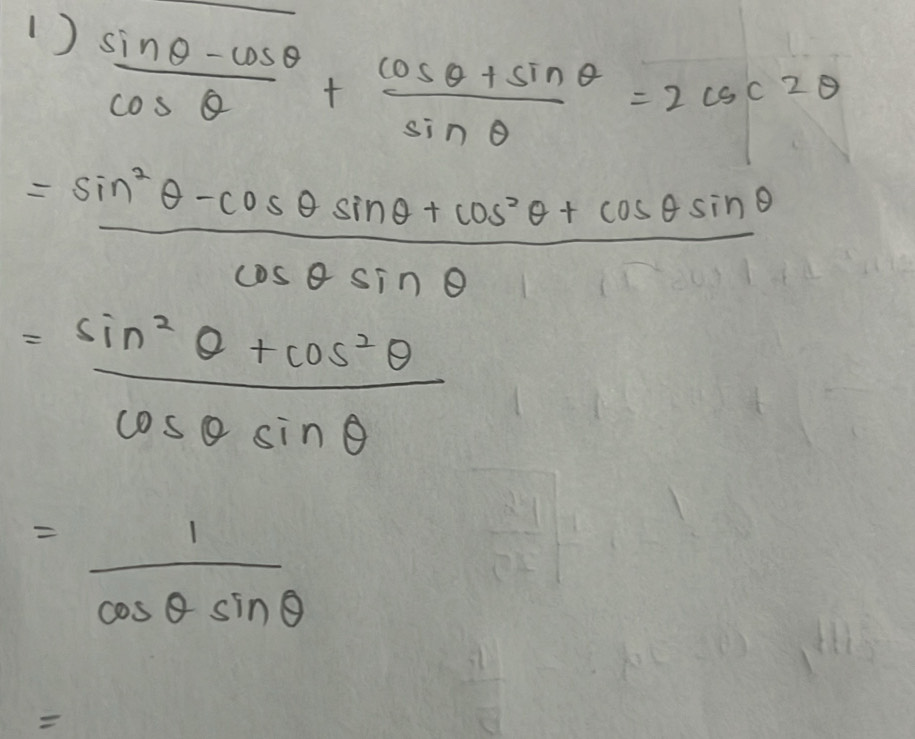 1) (sinθ - cosθ)/(cos θ) + (cosθ + sin θ)/(sin θ) = 2 csc 2θ
= (sin²θ - cosθ sinθ + cos²θ + cosθ sinθ)/(cosθ sin θ)
= (sin² θ + cos² θ)/(cosθ sin θ)
= 1/(cosθ sinθ)
=